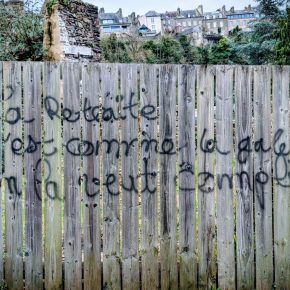 a Retraite
est comme la gale
n la veut compl